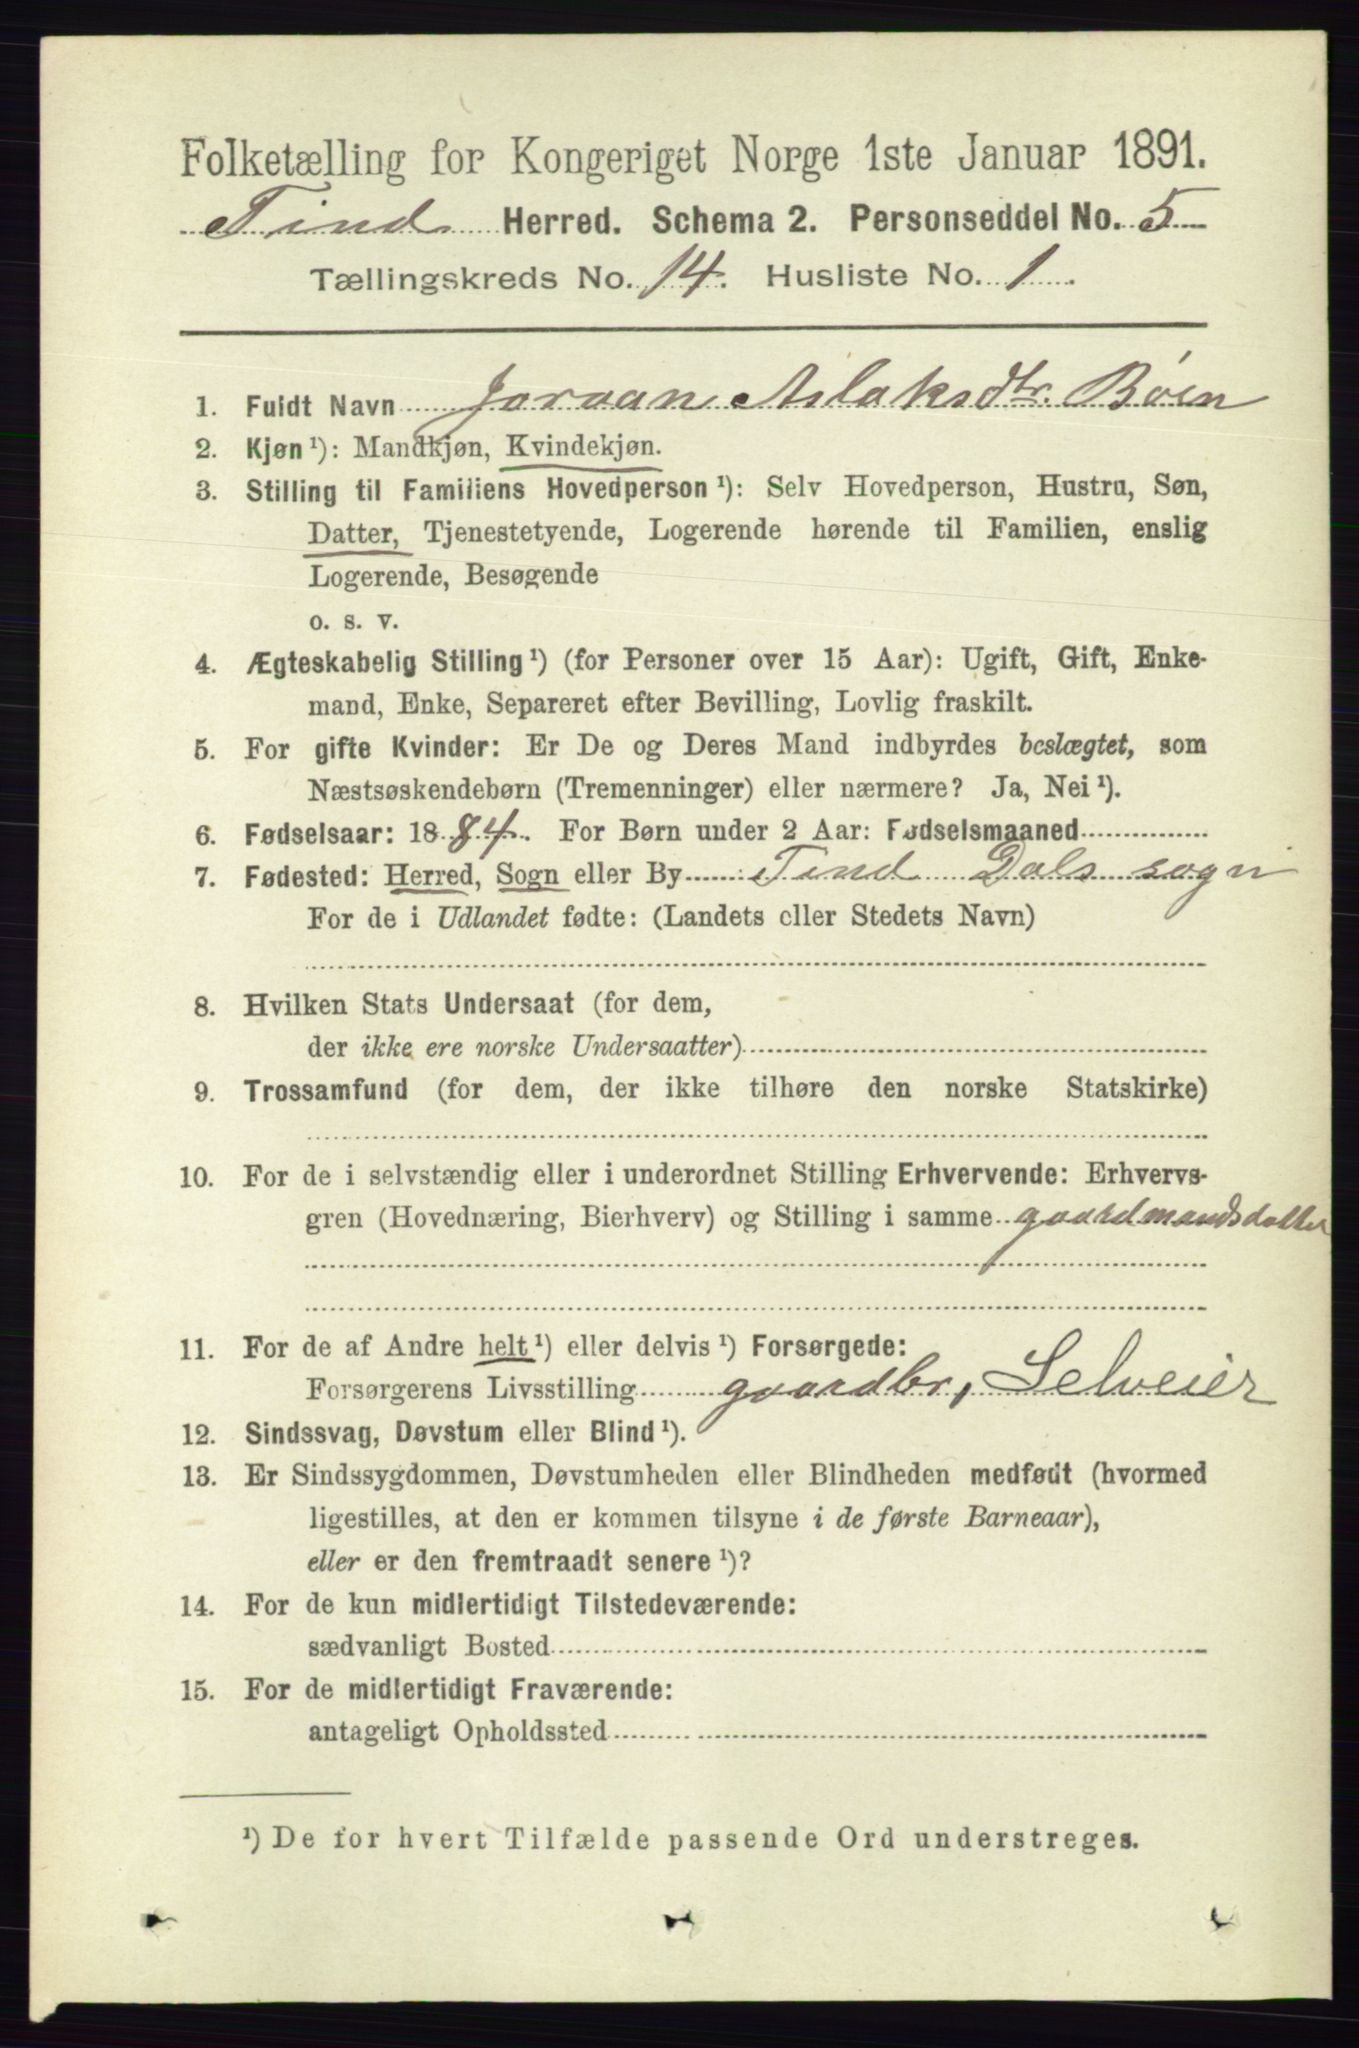 Folketælling for Kongeriget Norge 1ste Januar 1891.
Tind Herred. Schema 2. Personseddel No. 5
Tællingskreds No. 14. Husliste No. 1.
1. Fuldt Navn Joraan Aslaksdtr. Bøen
2. Kjøn ¹): Mandkjøn, Kvindekjøn.
3. Stilling til Familiens Hovedperson ¹): Selv Hovedperson, Hustru, Søn,
Datter, Tjenestetyende, Logerende hørende til Familien, enslig
Logerende, Besøgende
o. s. v.
4. Ægteskabelig Stilling ¹) (for Personer over 15 Aar): Ugift, Gift, Enke-
mand, Enke, Separeret efter Bevilling, Lovlig fraskilt.
5. For gifte Kvinder: Er De og Deres Mand indbyrdes beslægtet, som
Næstsøskendebørn (Tremenninger) eller nærmere? Ja, Nei ¹).
6. Fødselsaar: 1884. For Børn under 2 Aar: Fødselsmaaned
7. Fødested: Herred, Sogn eller By Tind Dals sogn
For de i Udlandet fødte: (Landets eller Stedets Navn)
8. Hvilken Stats Undersaat (for dem,
der ikke ere norske Undersaatter)
9. Trossamfund (for dem, der ikke tilhøre den norske Statskirke)
10. For de i selvstændig eller i underordnet Stilling Erhvervende: Erhvervs-
gren (Hovednæring, Bierhverv) og Stilling i samme gaardmandsdatter
11. For de af Andre helt ¹) eller delvis ¹) Forsørgede:
Forsørgerens Livsstilling gaardbr, Selveier
12. Sindssvag, Døvstum eller Blind ¹).
13. Er Sindssygdommen, Døvstumheden eller Blindheden medfødt (hvormed
ligestilles, at den er kommen tilsyne i de første Barneaar),
eller er den fremtraadt senere ¹)?
14. For de kun midlertidigt Tilstedeværende:
sædvanligt Bosted
15. For de midlertidigt Fraværende:
antageligt Opholdssted
¹) De for hvert Tilfælde passende Ord understreges.